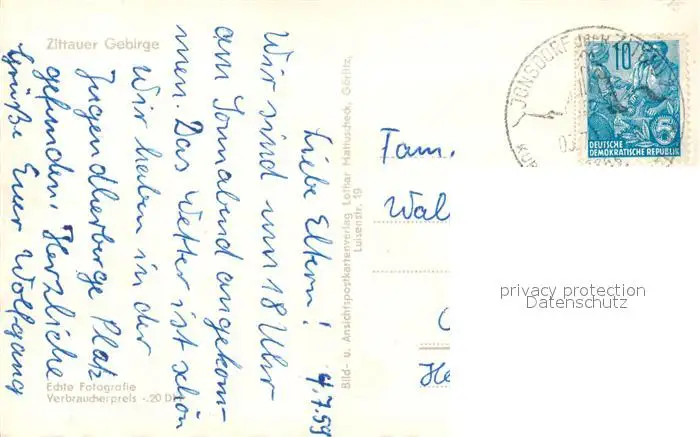 Zittauer Gebirge
4.7.59
Liebe Eltern!
Wir sind um 18 Uhr
am Sonnabend angekom-
men. Das Wetter ist schön
Wir haben in der
Jugendherberge Platz
gefunden. Herzliche
Grüße Euer Wolfgang
Echte Fotografie
Verbraucherpreis -.20 DM
Bild- u. Ansichtspostkartenverlag Lothar Mattuscheck, Görlitz,
Luisenstr. 19
Fam.
Wal
He
JONSDORF
KUR
10
5
DEUTSCHE
DEMOKRATISCHE REPUBLIK
privacy protection
Datenschutz